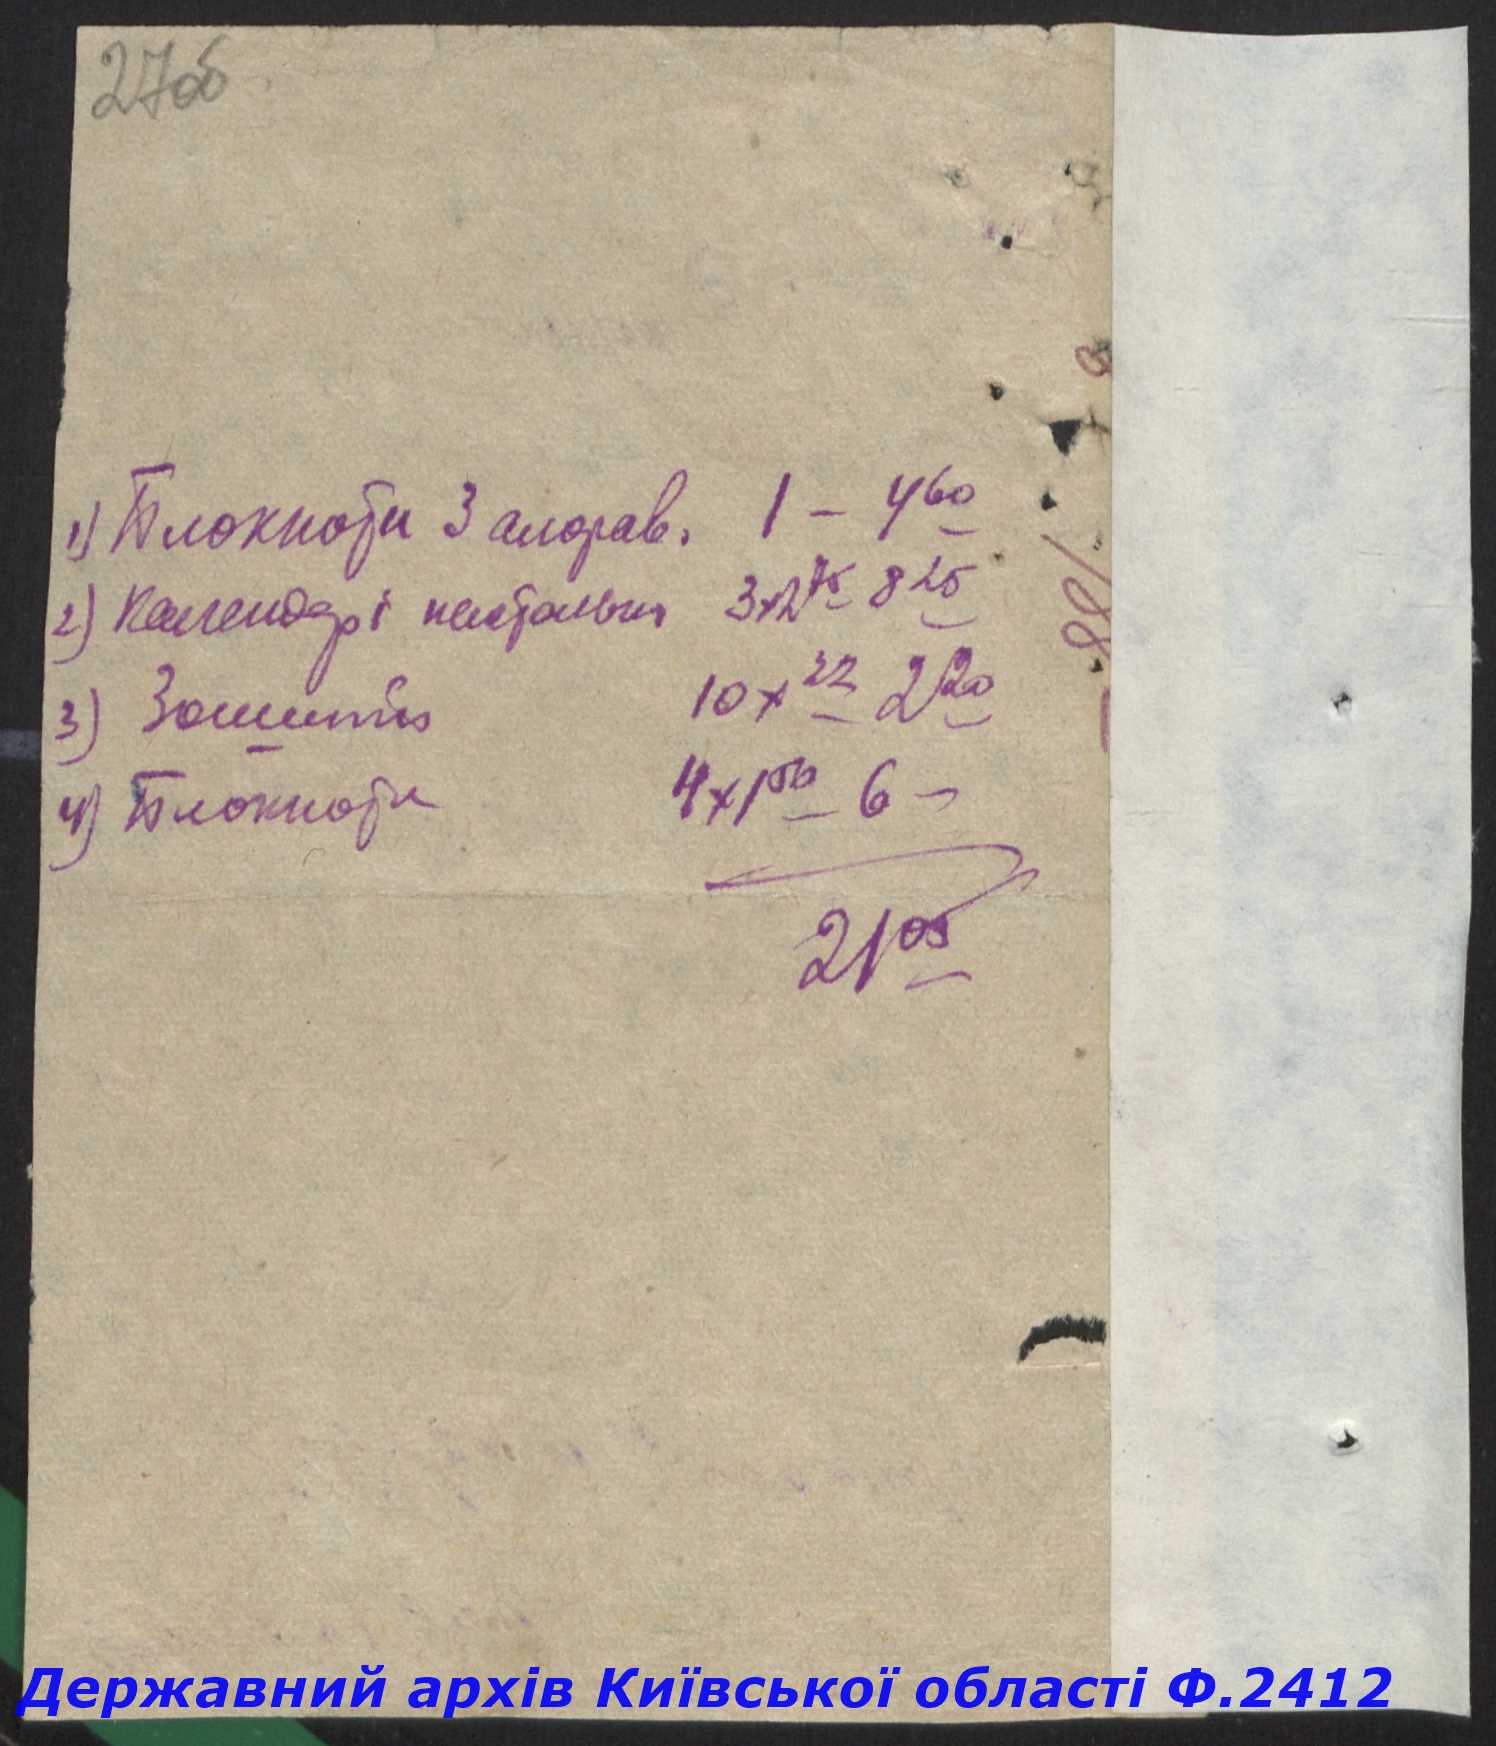 27об
1) Блокноти З алфав. 1 – 4 60
2) Календарі настольні 3x2 75 8 25
3) Зошитів 10 x 22 2 20
4) Блокноти 4x1 50 6 –
21 05
Державний архів Київської області Ф.2412